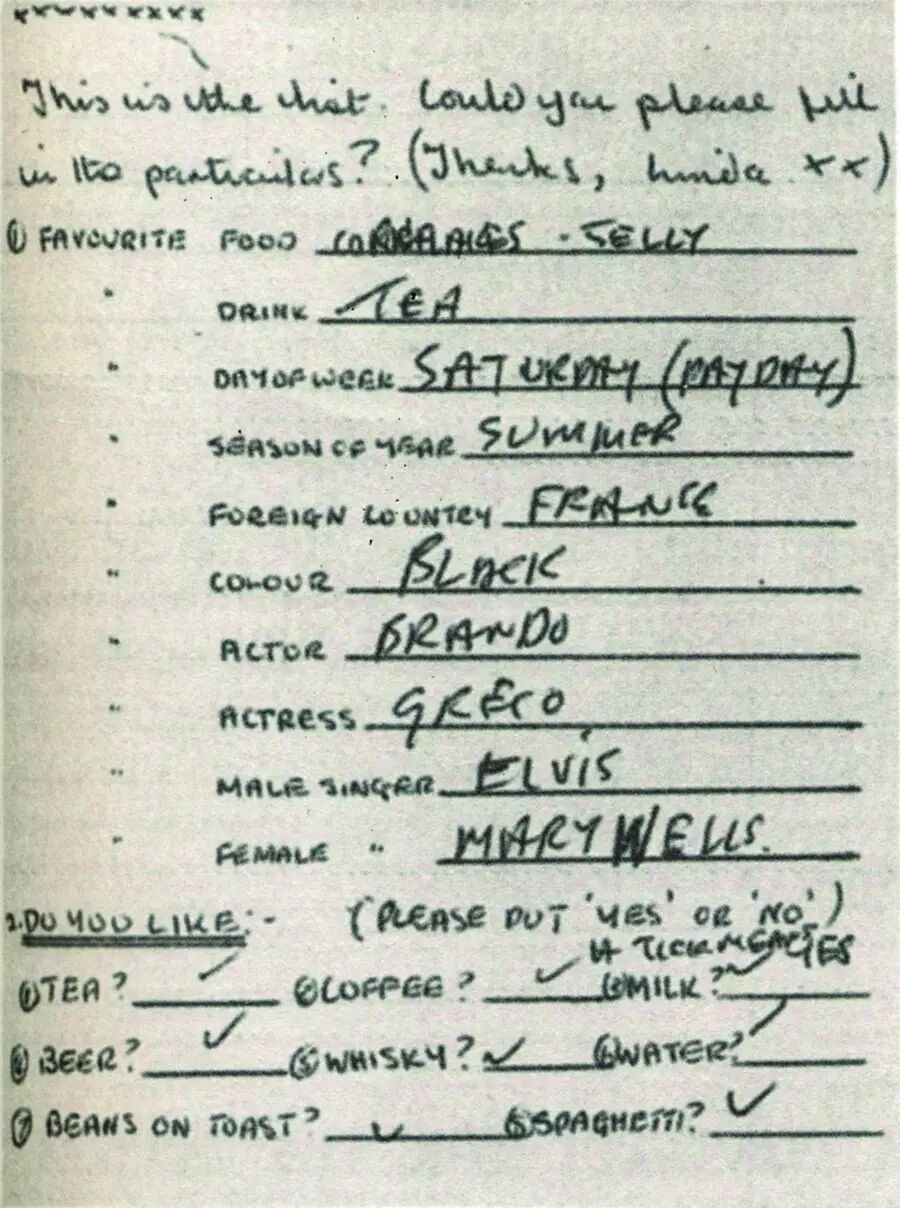 xxxxxxxxx
This is the list. Could you please fill
in the particulars? (Thanks, Linda xx)
① FAVOURITE FOOD CORNFLAKES - JELLY
" DRINK TEA
" DAY OF WEEK SATURDAY (PAYDAY)
" SEASON OF YEAR SUMMER
" FOREIGN COUNTRY FRANCE
" COLOUR BLACK
" ACTOR BRANDO
" ACTRESS GRECO
" MALE SINGER ELVIS
" FEMALE " MARY WELLS.
2. DO YOU LIKE:- (PLEASE PUT 'YES' OR 'NO')
A TICK MEANS YES
① TEA? ✓ ② COFFEE? ✓ ③ MILK? ✓
④ BEER? ✓ ⑤ WHISKY? ✓ ⑥ WATER? ✓
⑦ BEANS ON TOAST? ✓ ⑧ SPAGHETTI? ✓